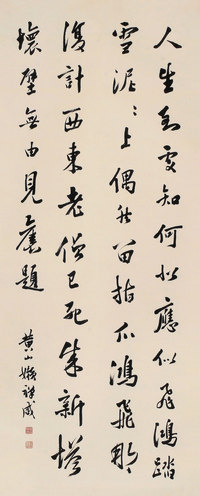 人生到處知何似應似飛鴻踏
雪泥〻上偶然留指爪鴻飛那
復計西東老僧已死成新塔
壞壁無由見舊題
黃山